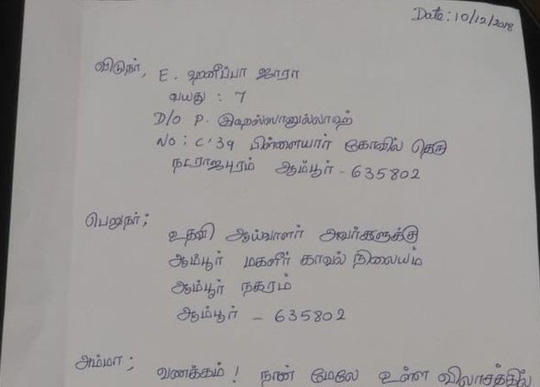 Date: 10/12/2018
விடுநர், E. ஹனீப்பா ஜாரா
வயது : 7
D/O P. இஹஸ்ஸானுல்லாஹ்
NO: C'39 பிள்ளையார் கோவில் தெரு
நடராஜபுரம் ஆம்பூர் - 635802
பெறுநர்;
உதவி ஆய்வாளர் அவர்களுக்கு
ஆம்பூர் மகளிர் காவல் நிலையம்
ஆம்பூர் நகரம்
ஆம்பூர் - 635802
அம்மா;
வணக்கம்! நான் மேலே உள்ள விலாசத்தில்